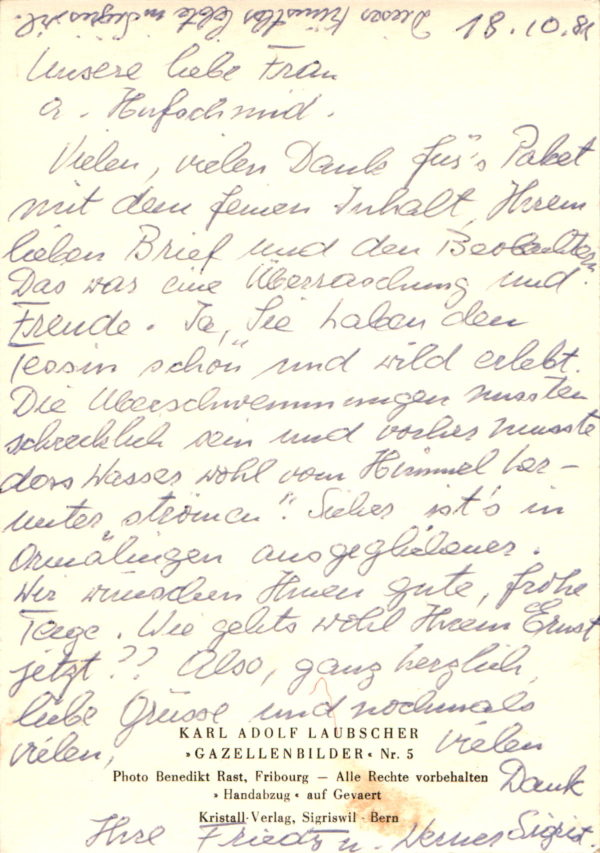 Dieser Künstler lebte in Sigriswil.
18.10.81
Unsere liebe Frau
a. Hufschmid.
Vielen, vielen Dank für's Paket
mit dem feinen Inhalt, Ihrem
lieben Brief und den Beobachter.
Das war eine Überraschung und
Freude. Ja, Sie haben den
Tessin schön und wild erlebt.
Die Überschwemmungen mussten
schrecklich sein und vorher musste
dass Wasser wohl vom Himmel her-
unter strömen". Sicher ist's in
Ormalingen ausgeglichener.
Wir wünschen Ihnen gute, frohe
Tage. Wie gehts wohl Ihrem Ernst
jetzt?? Also, ganz herzlich,
liebe Grüsse und nochmals
vielen, vielen
Dank
KARL ADOLF LAUBSCHER
»GAZELLENBILDER« Nr. 5
Photo Benedikt Rast, Fribourg — Alle Rechte vorbehalten
»Handabzug« auf Gevaert
Kristall-Verlag, Sigriswil - Bern
Ihre Friedy u. Werner Sigrist.